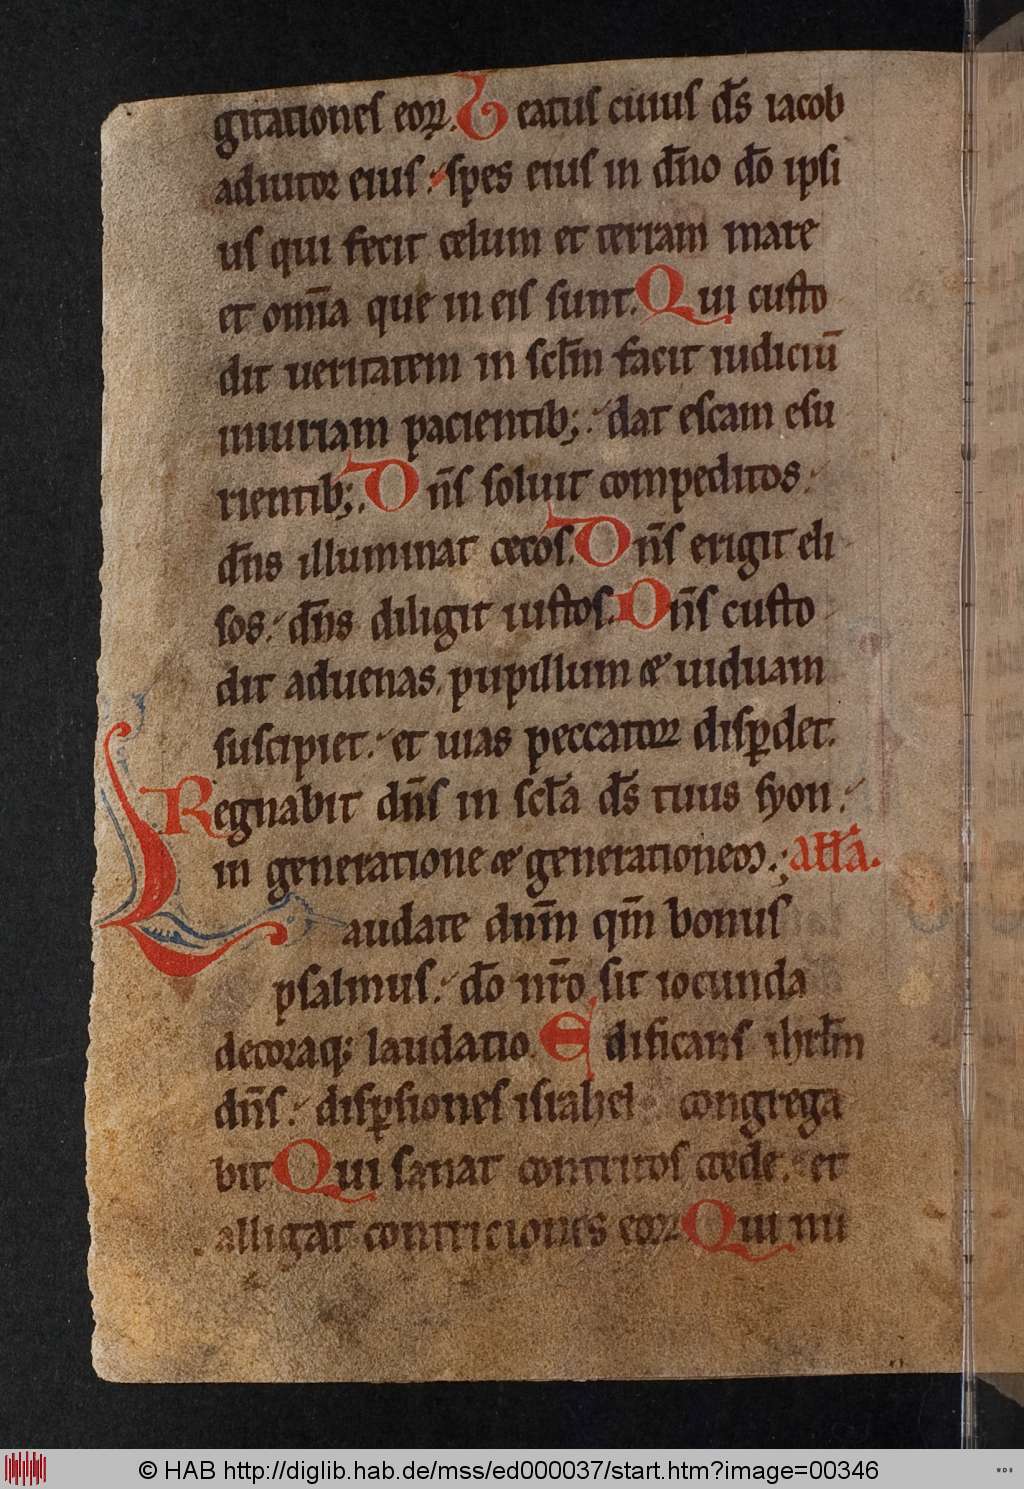 gitationes eoꝝ. Beatus cuius ds̄ iacob
adiutor eius: spes eius in dn̄o dō ipsi
us qui fecit celum et terram mare
et om̄ia que in eis sunt. Qui custo
dit ueritatem in sclm̄ facit iudiciū
iniuriam pacientib; dat escam esu
rientib;. Dn̄s soluit compeditos.
dn̄s illuminat cecos. Dn̄s erigit eli
sos. dn̄s diligit iustos. Dn̄s custo
dit aduenas. pupillum & uiduam
suscipiet. et uias peccatoꝝ disꝑdet.
Regnabit dn̄s in scl̄a ds̄ tuus syon.
in generatione & generationem. all̄a.
Laudate dnm̄ qm̄ bonus
psalmus. dō nr̄o sit iocunda
decoraq; laudatio. Edificans ihrlm̄
dn̄s. disꝑsiones israhel congrega
bit Qui sanat contritos corde. et
alligat contriciones eoꝝ Qui nu
© HAB http://diglib.hab.de/mss/ed000037/start.htm?image=00346